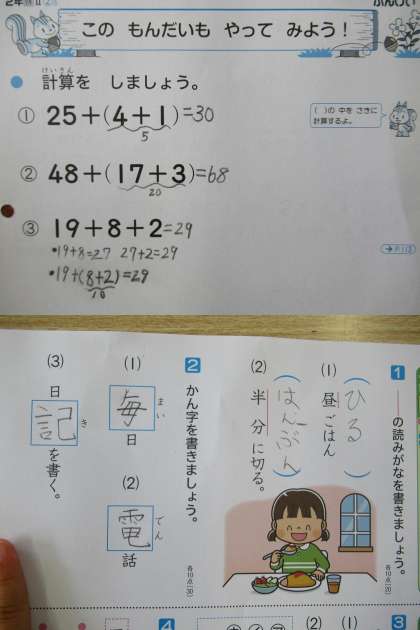 2年
このもんだいも やって みよう！
けいさん
計算を しましょう。
① 25＋(4＋1)=30
5
( )の 中を さきに
計算するよ。
② 48＋(17＋3)=68
20
③ 19＋8＋2=29
•19+8=27 27+2=29
•19+(8+2)=29
10
1 ――の読みがなを書きましょう。
各10点(20)
(1) 昼ごはん
(ひる)
(2) 半分に切る。
(はんぶん)
2 かん字を書きましょう。
各10点(30)
(1) 毎日
まい
(2) 電話
でん
(3) 日記を書く。
き
3
(1)
(2)
4